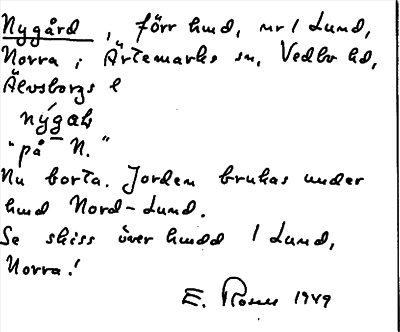 Nygård, förr hmd, nr 1 Lund,
Norra i Ärtemarks sn, Vedbo hd,
Älvsborgs l
nýgaḷ
"på N."
Nu borta. Jorden brukas under
hmd Nord-Lund.
Se skiss över hmdd 1 Lund,
Norra!
E. Rosell 1949